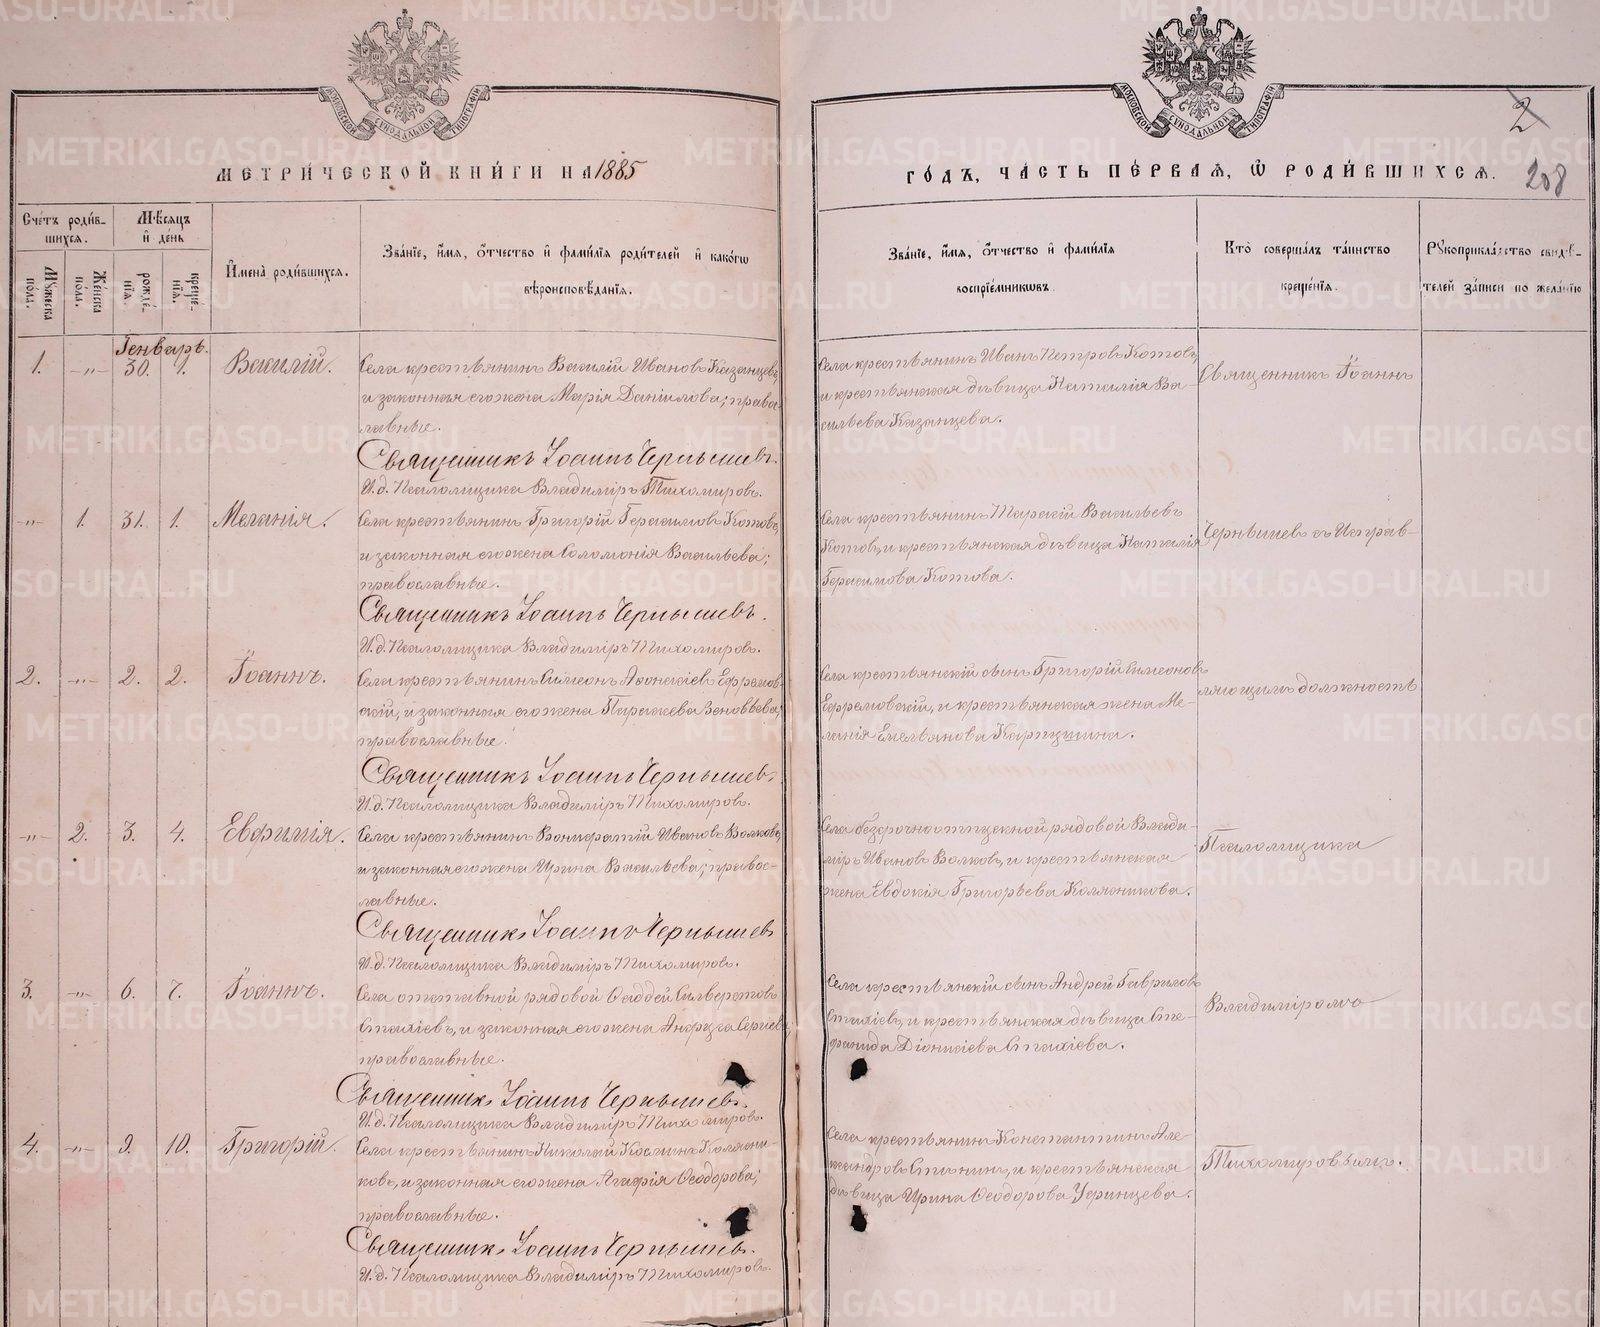 МОСКОВСКОЙ СУНОДАЛЬНОЙ ТИПОГРАФІИ
МОСКОВСКОЙ СУНОДАЛЬНОЙ ТИПОГРАФІИ
2
МЕТРИ́ЧЕСКОЙ КНИ́ГИ НА 1885
ГО́ДЪ, ЧА́СТЬ ПЕ́РВАѦ, Ѽ РОДИ́ВШИХСѦ. 208
Сче́тъ роди́в-
шихсѧ.
Мꙋжеска пола̀.
Же́нска пола̀.
Мѣ́сѧцъ
и҆ де́нь
рожде́-
нїѧ.
креще́-
нїѧ.
И҆мена̀ роди́вшихсѧ.
Зва́нїе, и҆́мѧ, ѻ҆́тчество и҆ фами́лїѧ роди́телей и҆ како́гѡ
вѣроисповѣ́данїѧ.
Зва́нїе, и҆́мѧ, ѻ҆́тчество и҆ фами́лїѧ
воспрїе́мникѡвъ.
Кто̀ соверша́лъ та́инство
креще́нїѧ.
Рꙋкоприкла́дство свидѣ́-
телей за́писи по жела́нїю
Генварь.
1. -„- 30. 1. Василій. Села крестьянинъ Василій Ивановъ Казанцевъ,
и законная его жена Марія Даніилова; право-
славные.
Священникъ Іоаннъ Чернышевъ.
И.д. Псаломщика Владиміръ Тихомировъ.
Села крестьянинъ Иванъ Петровъ Котовъ,
и крестьянская дѣвица Наталія Ва-
сильева Казанцева.
Священникъ Іоаннъ
-„- 1. 31. 1. Меланія. Села крестьянинъ Григорій Герасимовъ Котовъ,
и законная его жена Соломонія Васильева;
православные.
Священникъ Іоаннъ Чернышевъ.
И.д. Псаломщика Владиміръ Тихомировъ.
Села крестьянинъ Васильевъ
Котовъ, и крестьянская дѣвица Наталія
Герасимова Котова.
Чернышев съ Исправ-
2. -„- 2. 2. Іоаннъ. Села крестьянинъ Симеонъ Ефремов-
скій, и законная его жена Параскева Зеновьева;
православные.
Священникъ Іоаннъ Чернышевъ.
И.д. Псаломщика Владиміръ Тихомировъ.
Села крестьянскій сынъ Григорій Симеоновъ
Ефремовскій, и крестьянская жена Ме-
ланія Емельянова
ляющимъ должность
-„- 2. 3. 4. Евфимія. Села крестьянинъ Ивановъ Волковъ,
и законная его жена Ирина Васильева; правос-
лавные.
Священникъ Іоаннъ Чернышевъ
И.д. Псаломщика Владиміръ Тихомировъ.
Села безсрочноотпускной рядовой Влади-
міръ Ивановъ Волковъ, и крестьянская
жена Евдокія Григорьева Колясникова.
Псаломщика
3. -„- 6. 7. Іоаннъ. Села отставной рядовой Ѳаддей Сильверстовъ
Стахіевъ, и законная его жена Анфуса Сергіева,
православные.
Священникъ Іоаннъ Чернышевъ.
И.д. Псаломщика Владиміръ Тихомировъ.
Села крестьянскій сынъ Андрей Гавриловъ
Стахіевъ, и крестьянская дѣвица Сте-
фанида Діонисіева Стахіева.
Владиміромъ
4. -„- 9. 10. Григорій. Села крестьянинъ Николай Косминъ Колясни-
ковъ, и законная его жена Агафія Ѳеодорова;
православные.
Священникъ Іоаннъ Чернышевъ.
И.д. Псаломщика Владиміръ Тихомировъ.
Села крестьянинъ Константинъ Але-
ксандровъ и крестьянская
дѣвица Ирина Ѳеодорова
Тихомировымъ.
METRIKI.GASO-URAL.RU